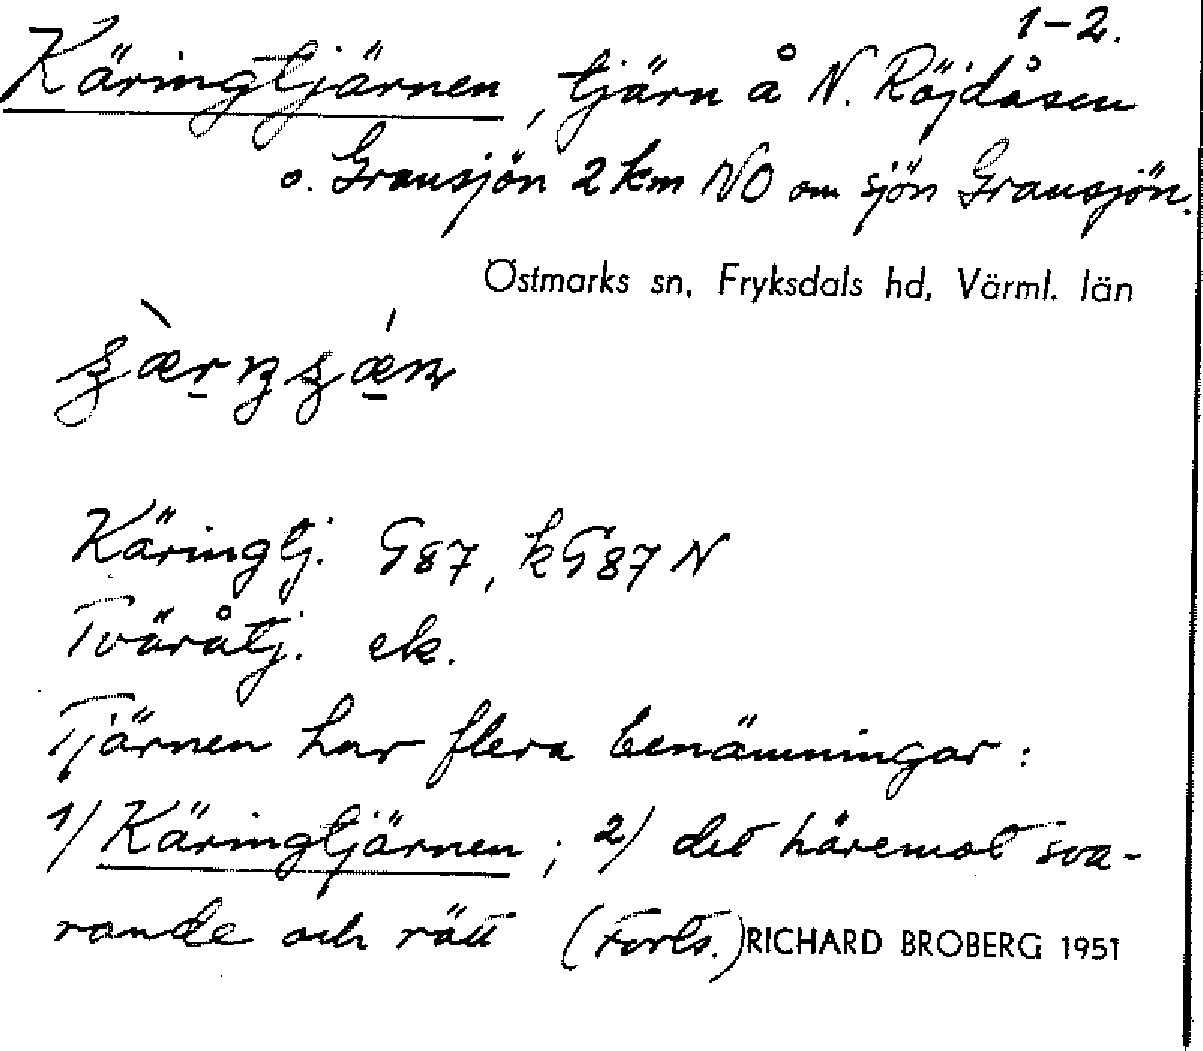 1-2.
Käringtjärnen, tjärn å N. Röjdåsen
o. Gransjön 2 km NO om sjön Gransjön.
Östmarks sn, Fryksdals hd, Värml. län
Käringtj. G87, kG87N
Tväråtj. ek.
Tjärnen har flera benämningar:
1/ Käringtjärnen; 2/ det häremot sva-
rande och rätt (Forts.) RICHARD BROBERG 1951